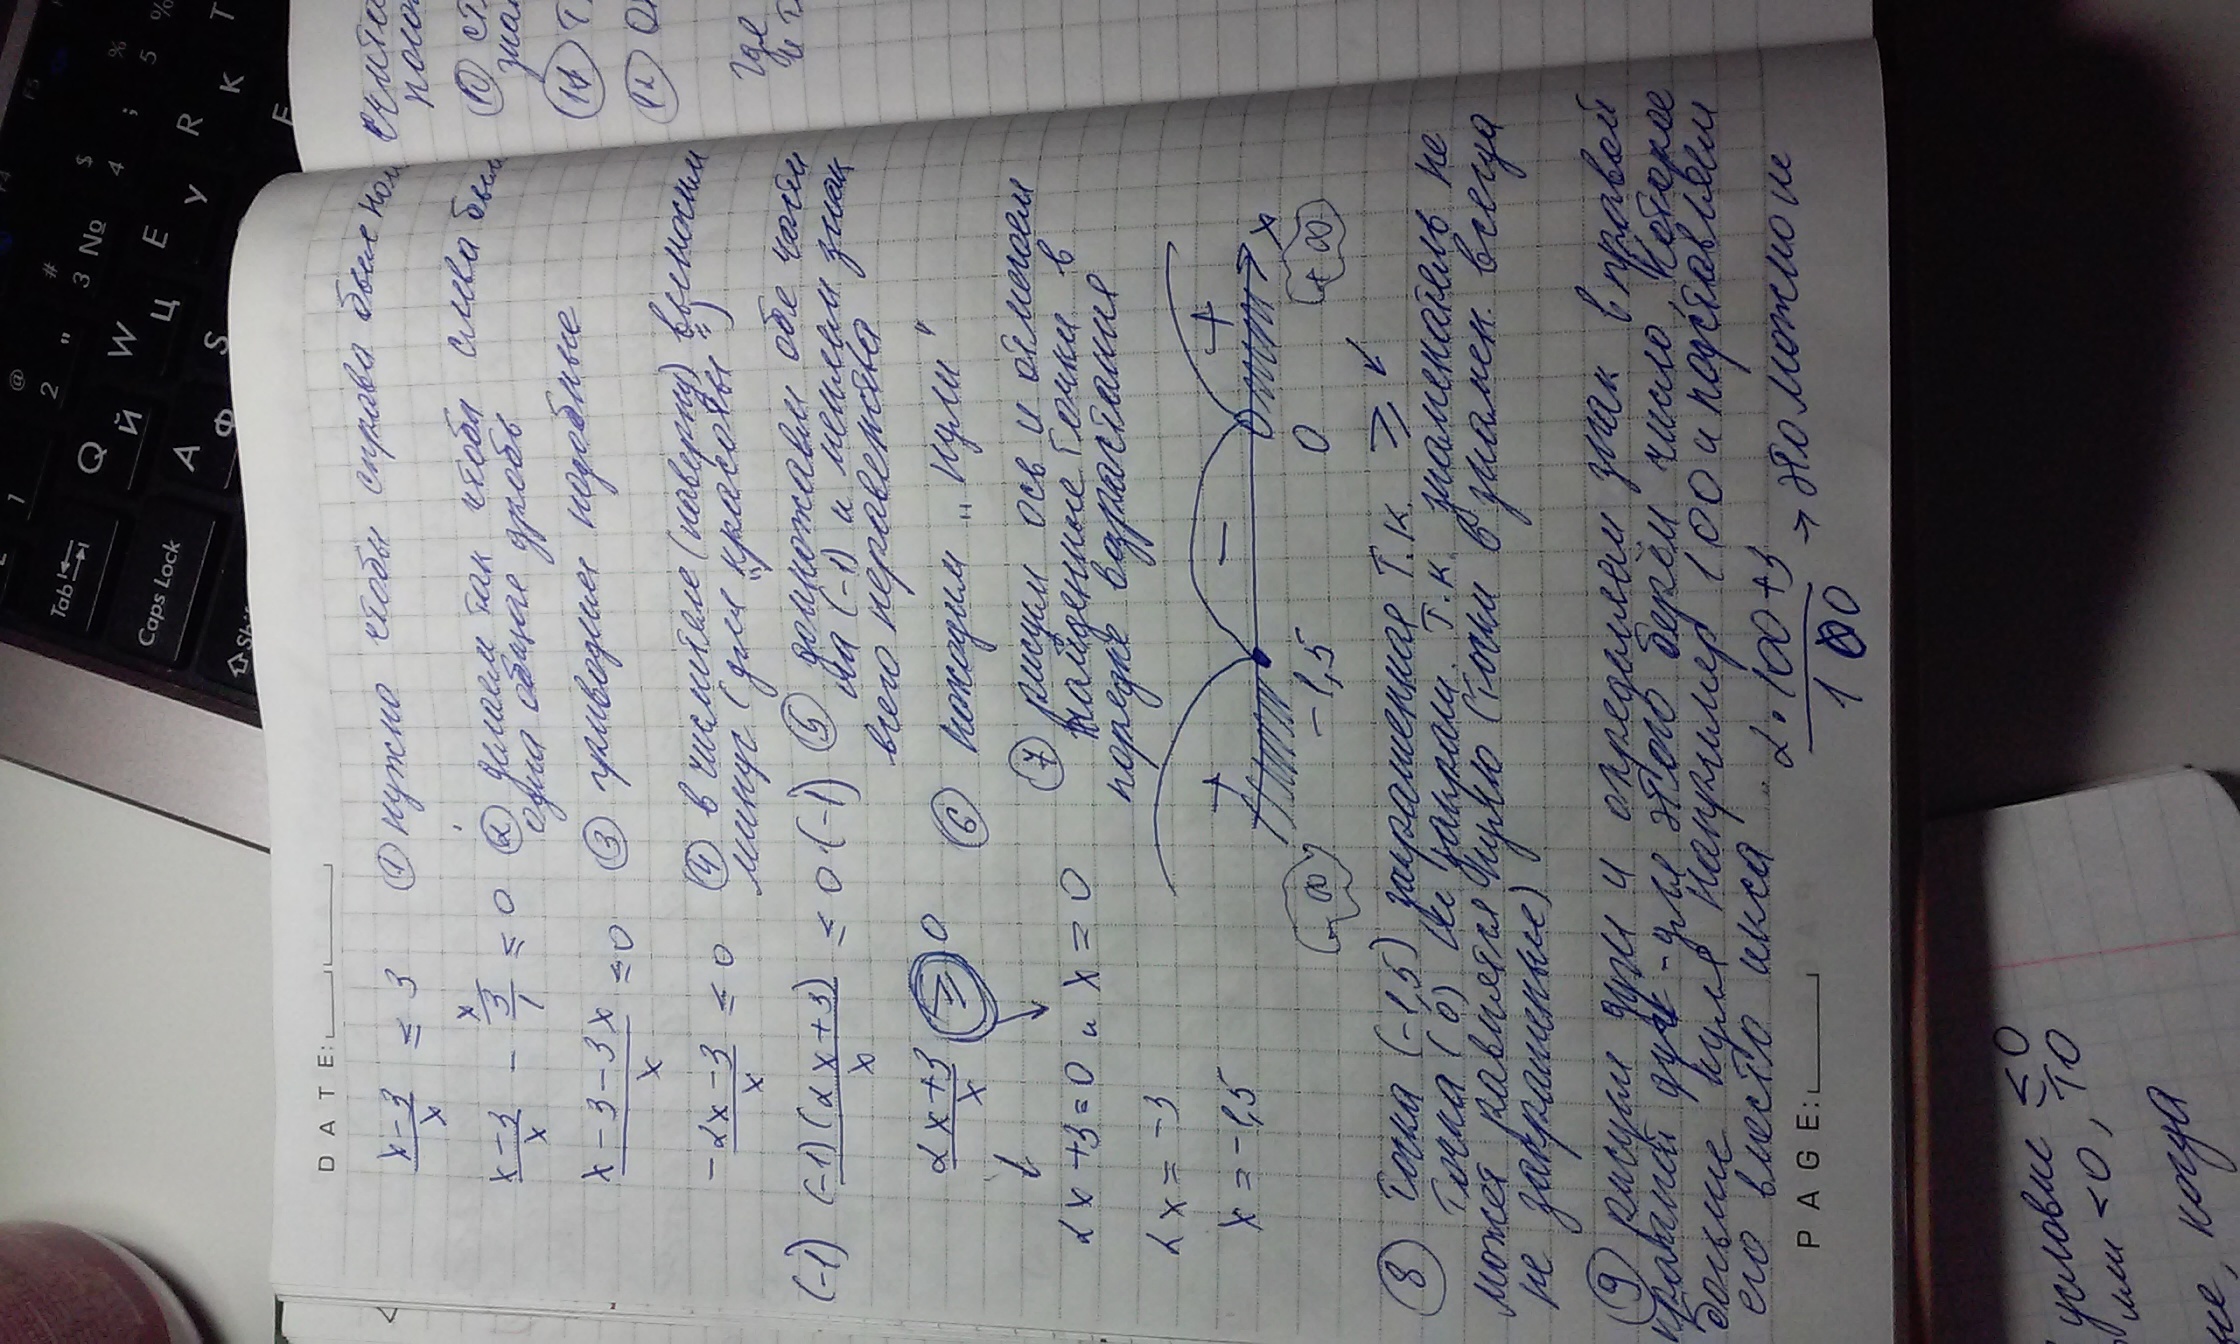 DATE:
x-3/x ≤ 3 ① нужно чтобы справа был ноль
x-3/x - 3/1 ˣ ≤ 0 ② делаем так чтобы слева была
одна общая дробь
x-3-3x/x ≤ 0 ③ приводим подобные
-2x-3/x ≤ 0 ④ в числителе (наверху) выносим
минус (для "красоты")
(-1) (-1)(2x+3)/x ≤ 0·(-1) ⑤ домножаем обе части
на (-1) и меняем знак
всего неравенства
2x+3/x ≥ 0 ⑥ находим "нули"
2x+3=0 и x=0 ⑦ рисуем ось и отмечаем
найденные точки в
2x=-3 порядке возрастания
x=-1,5 + - + x
-1,5 0
(-∞) (+∞)
⑧ точка (-1,5) закрашенная т.к. ≥
точка (0) не закраш. т.к. знаменатель не
может равняется нулю (точки в знамен. всегда
не закрашенные)
⑨ рисуем дуги и определяем знак в правой
крайней дуге - для этого берём число которое
больше нуля например 100 и подставляем
его вместо икса 2·100+3/100 → положит
PAGE:
F5
%
5
;
4
$
3
№
#
2
"
@
1
Tab
Q
Й
W
Ц
E
У
R
К
T
Caps Lock
A
Ф
S
E
⑩
⑪
⑫
где
условие ≤0
или <0, то
когда